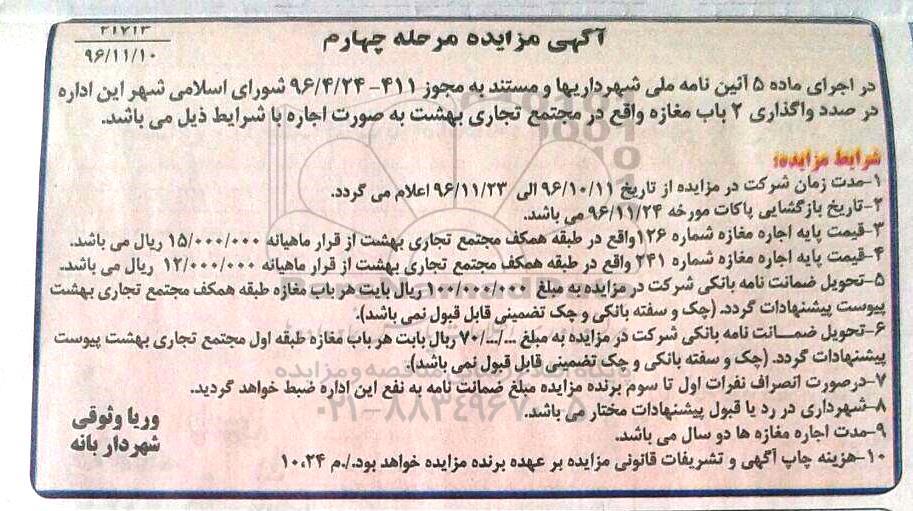 آگهی مزایده مرحله چهارم
۹۶/۱۱/۱۰
در اجرای ماده ۵ آئین نامه ملی شهرداریها و مستند به مجوز ۴۱۱-۹۶/۴/۲۴ شورای اسلامی شهر این اداره
در صدد واگذاری ۲ باب مغازه واقع در مجتمع تجاری بهشت به صورت اجاره با شرایط ذیل می باشد.
شرایط مزایده:
۱-مدت زمان شرکت در مزایده از تاریخ ۹۶/۱۰/۱۱ الی ۹۶/۱۱/۲۳ اعلام می گردد.
۲-تاریخ بازگشایی پاکات مورخه ۹۶/۱۱/۲۴ می باشد.
۳-قیمت پایه اجاره مغازه شماره ۱۲۶واقع در طبقه همکف مجتمع تجاری بهشت از قرار ماهیانه ۱۵/۰۰۰/۰۰۰ ریال می باشد.
۴-قیمت پایه اجاره مغازه شماره ۲۴۱ واقع در طبقه همکف مجتمع تجاری بهشت از قرار ماهیانه ۱۲/۰۰۰/۰۰۰ ریال می باشد.
۵-تحویل ضمانت نامه بانکی شرکت در مزایده به مبلغ ۱۰۰/۰۰۰/۰۰۰ ریال بابت هر باب مغازه طبقه همکف مجتمع تجاری بهشت
پیوست پیشنهادات گردد. (چک و سفته بانکی و چک تضمینی قابل قبول نمی باشد).
۶-تحویل ضمـــانت نامه بانکی شرکت در مزایده به مبلغ ۷۰/.../... ریال بابت هر باب مغازه طبقه اول مجتمع تجاری بهشت پیوست
پیشنهادات گردد. (چک و سفته بانکی و چک تضمینی قابل قبول نمی باشد).
۷-درصورت انصراف نفرات اول تا سوم برنده مزایده مبلغ ضمانت نامه به نفع این اداره ضبط خواهد گردید.
۸-شهرداری در رد یا قبول پیشنهادات مختار می باشد.
۹-مدت اجاره مغازه ها دو سال می باشد.
۱۰-هزینه چاپ آگهی و تشریفات قانونی مزایده بر عهده برنده مزایده خواهد بود./.م ۱۰.۲۴
وریا وثوقی
شهردار بانه
۰۲۱-۸۸۳۴۹۶۷۰-۵